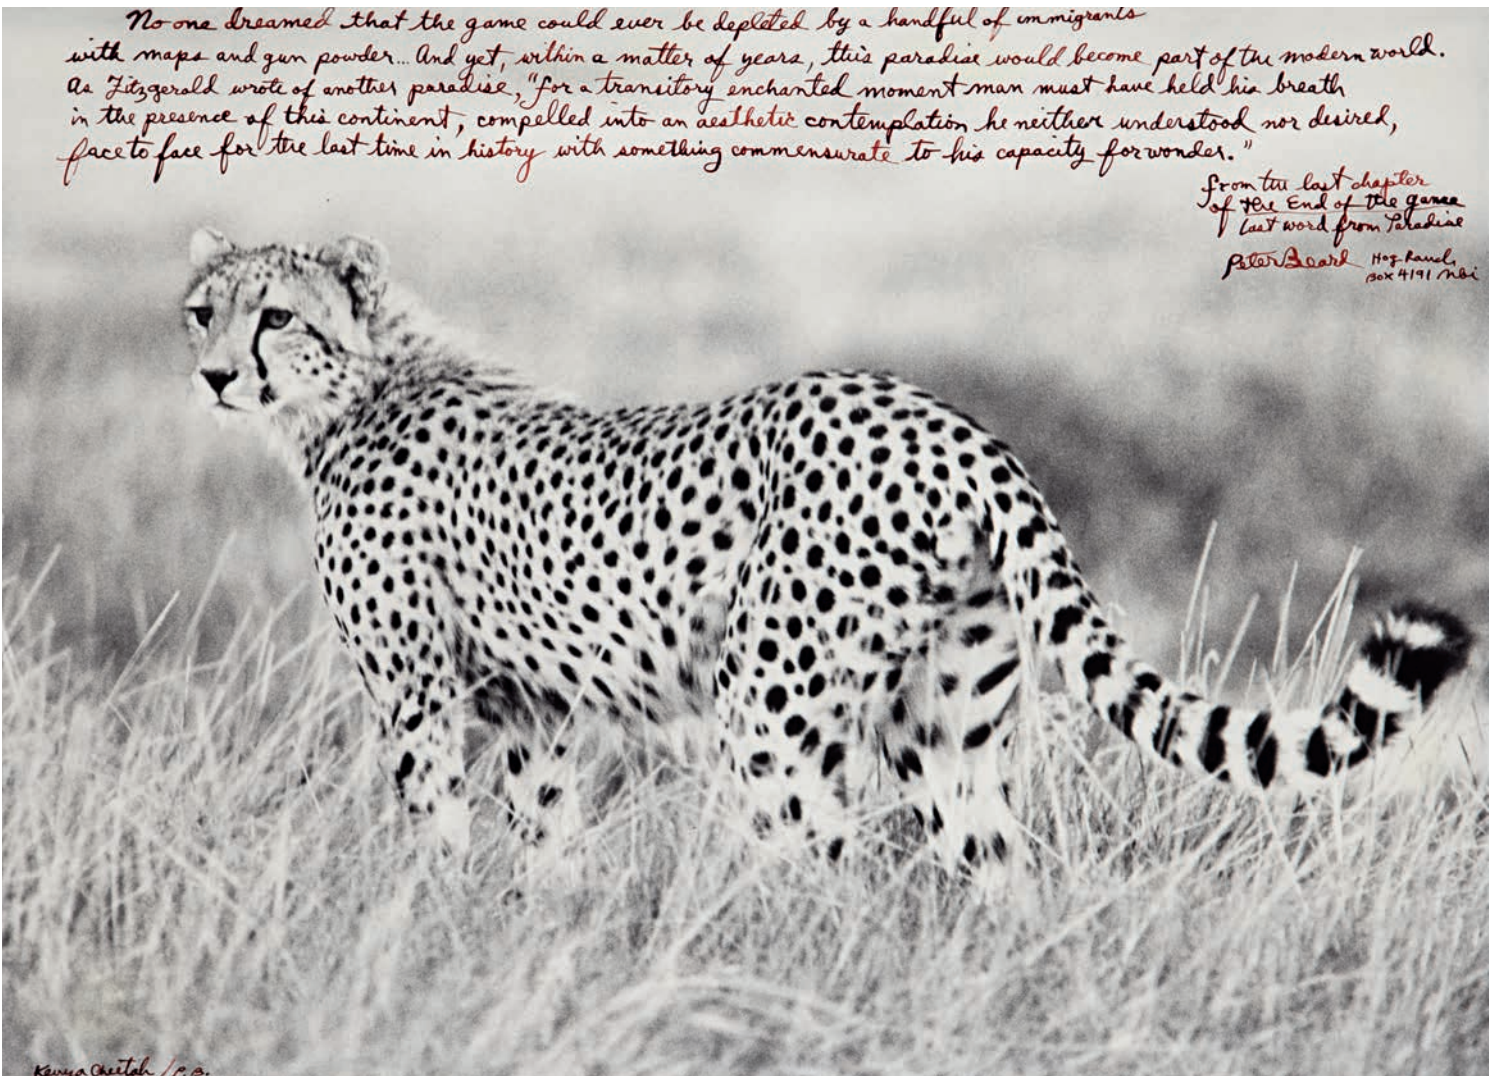 No one dreamed that the game could ever be depleted by a handful of immigrants
with maps and gun powder... And yet, within a matter of years, this paradise would become part of the modern world.
As Fitzgerald wrote of another paradise, "for a transitory enchanted moment man must have held his breath
in the presence of this continent, compelled into an aesthetic contemplation he neither understood nor desired,
face to face for the last time in history with something commensurate to his capacity for wonder."
from the last chapter
of The End of the Game
Last word from Paradise
Peter Beard Hog Ranch
Box 4191 Nbi
Kenya Cheetah / P.B.